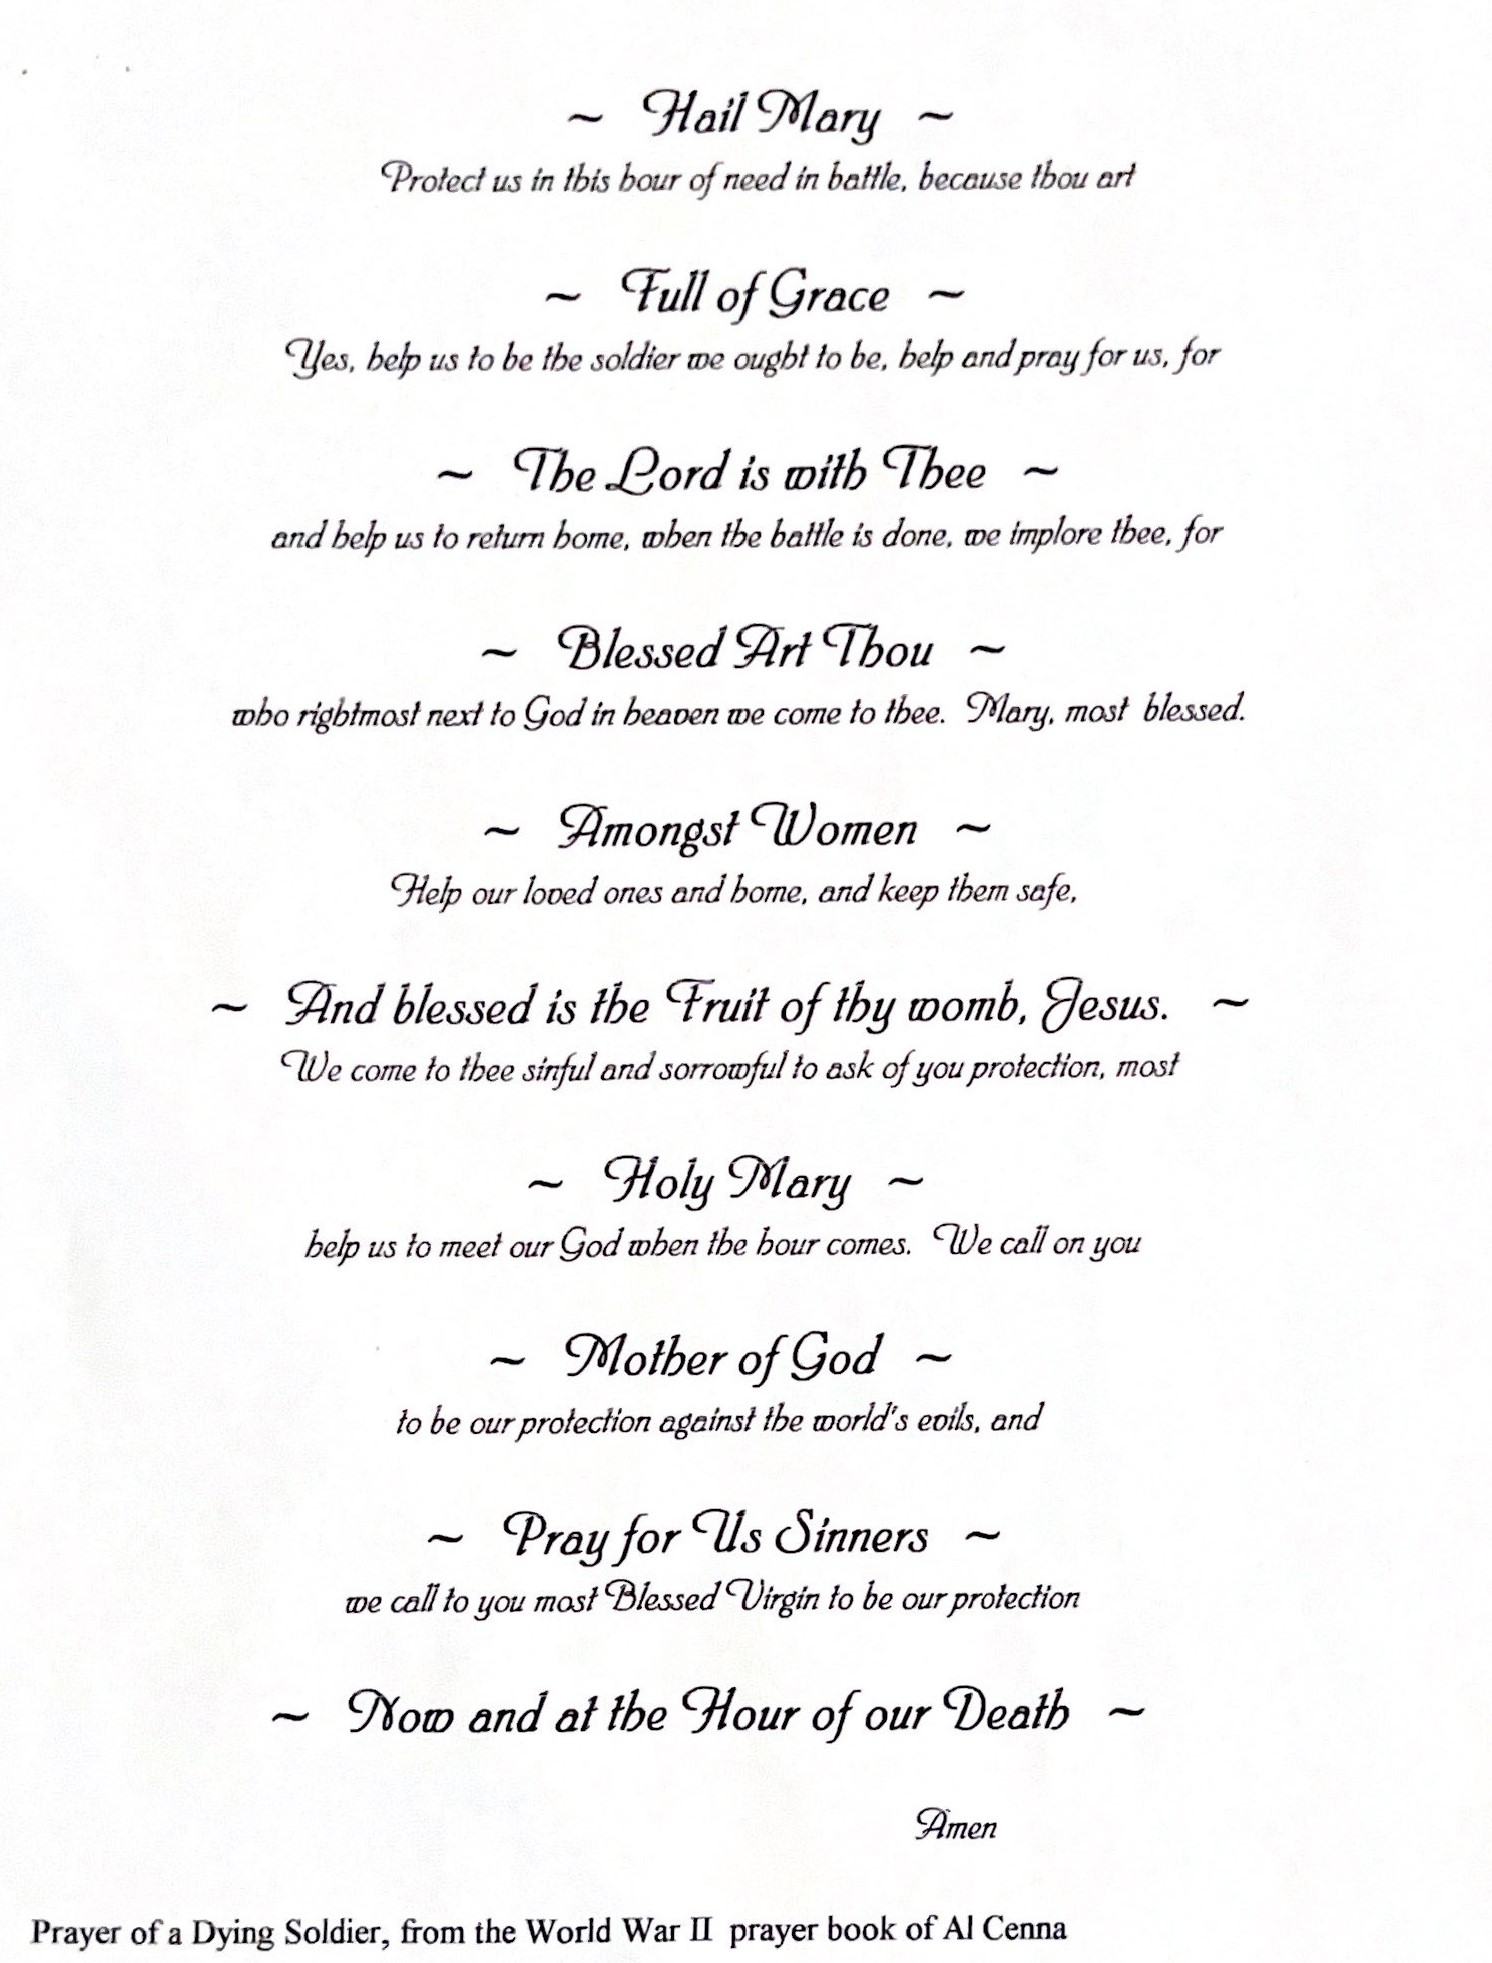 ~ Hail Mary ~
Protect us in this hour of need in battle, because thou art
~ Full of Grace ~
Yes, help us to be the soldier we ought to be, help and pray for us, for
~ The Lord is with Thee ~
and help us to return home, when the battle is done, we implore thee, for
~ Blessed Art Thou ~
who rightmost next to God in heaven we come to thee. Mary, most blessed.
~ Amongst Women ~
Help our loved ones and home, and keep them safe,
~ And blessed is the Fruit of thy womb, Jesus. ~
We come to thee sinful and sorrowful to ask of you protection, most
~ Holy Mary ~
help us to meet our God when the hour comes. We call on you
~ Mother of God ~
to be our protection against the world's evils, and
~ Pray for Us Sinners ~
we call to you most Blessed Virgin to be our protection
~ Now and at the Hour of our Death ~
Amen
Prayer of a Dying Soldier, from the World War II prayer book of Al Cenna